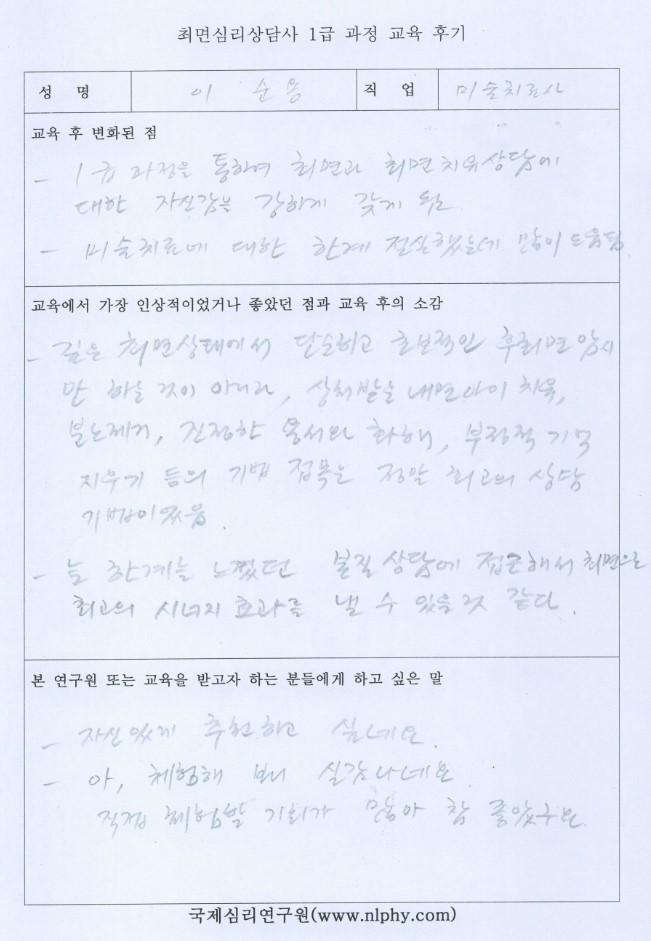 최면심리상담사 1급 과정 교육 후기
성 명 이 순 용 직 업 미술치료사
교육 후 변화된 점
- 1급 과정을 통하여 최면과 최면치유상담에
대한 자신감을 강하게 갖게 됨.
- 미술치료에 대한 한계 절실했는데 많이 도움됨
교육에서 가장 인상적이었거나 좋았던 점과 교육 후의 소감
- 깊은 최면상태에서 단순하고 초보적인 후최면 암시
만 하는 것이 아니라, 상처받은 내면아이 치유,
분노제거, 진정한 용서와 화해, 부정적 기억
지우기 등의 기법 접목은 정말 최고의 상담
기법이었음.
- 늘 한계를 느꼈던 본질 상담에 접근해서 최면으로
최고의 시너지 효과를 낼 수 있을 것 같다.
본 연구원 또는 교육을 받고자 하는 분들에게 하고 싶은 말
- 자신있게 추천하고 싶네요.
- 아, 체험해 보니 실감나네요
직접 체험할 기회가 많아 참 좋았구요.
국제심리연구원(www.nlphy.com)